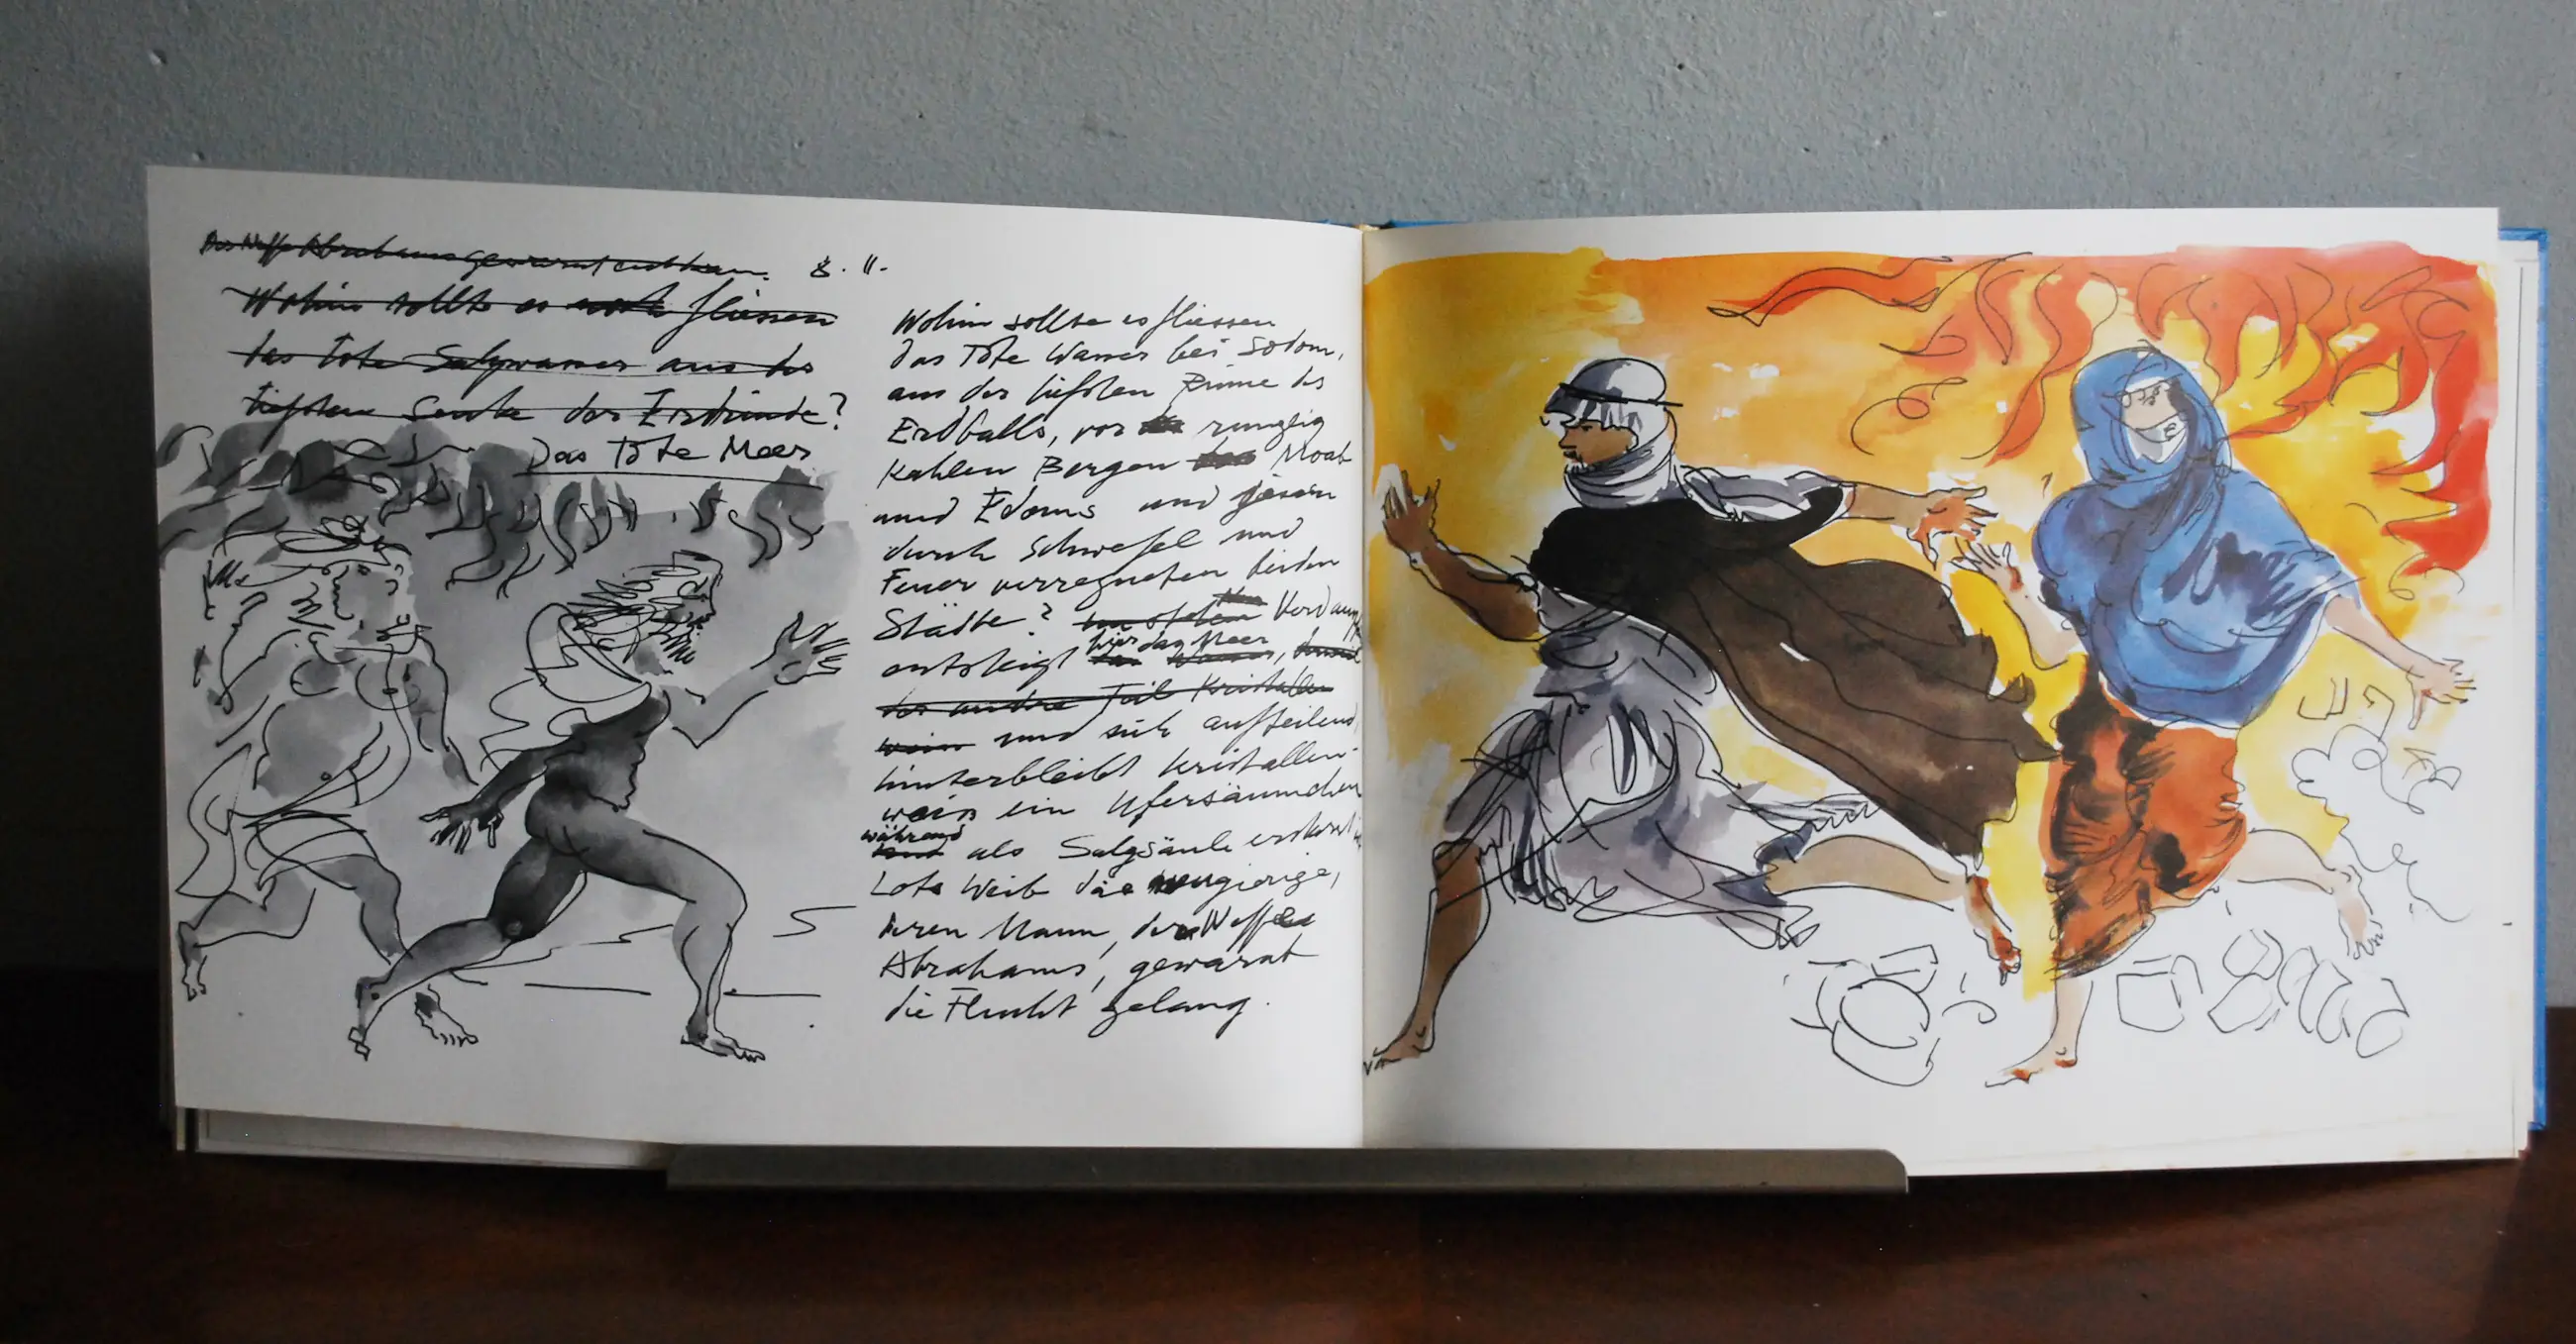 Der Neffe Abrahams gewarnt entkam. 8. 11.
Wohin sollte es fliessen
das Tote Salzwasser aus der
tiefsten Senke der Erdrinde?
Das Tote Meer
Wohin sollte es fliessen
das Tote Wasser bei Sodom,
aus der tiefsten Rinne des
Erdballs, vor runzlig
Kahlen Bergen Moab
und Edoms und jenen
durch Schwefel und
Feuer verregneten beiden
Städte? Verdampft
entsteigt hier das Meer
der andre Teil Kristallen
weiss und sich aufteilend,
hinterbleibt kristallen-
weiss ein Ufersäumchen
während
als Salzsäule erstarrt
Lots Weib die neugierige,
deren Mann, der Neffe
Abrahams, gewarnt
die Flucht gelang.